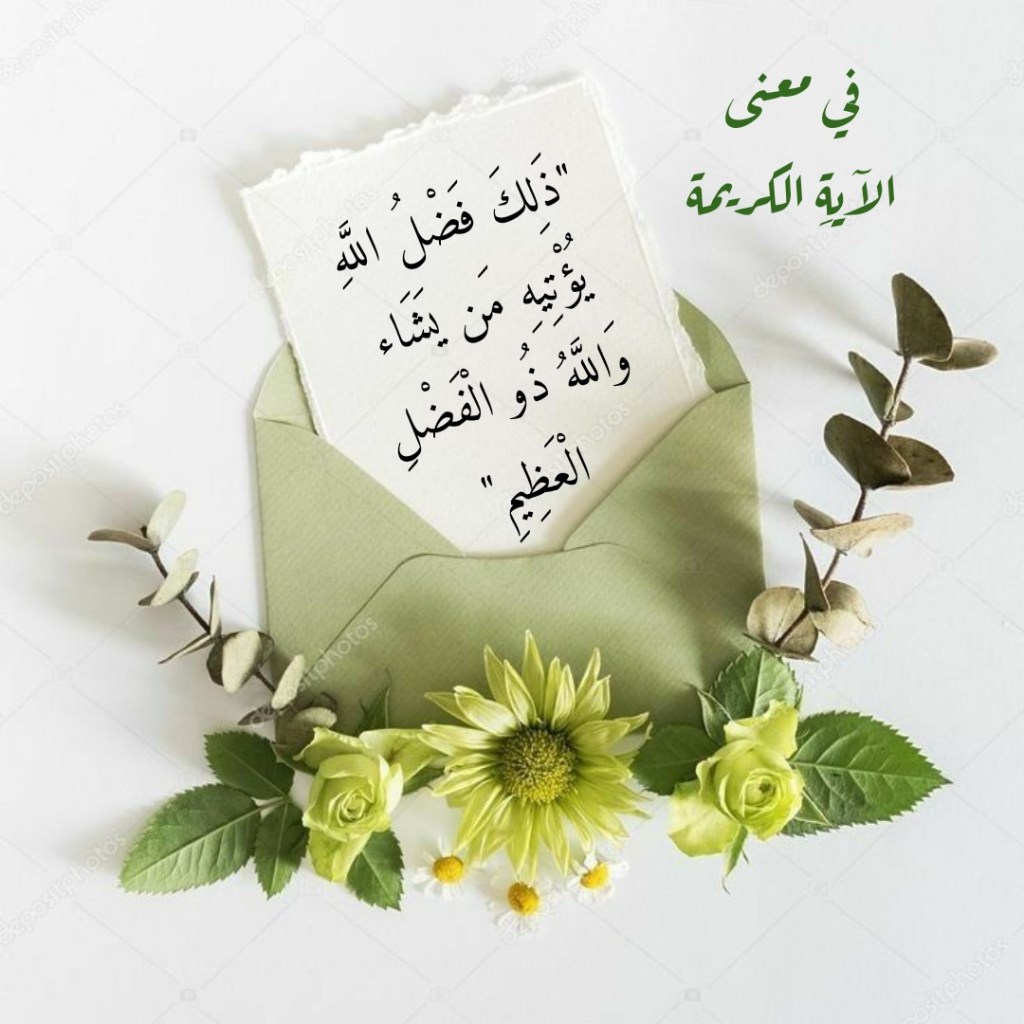 في معنى
الآيةِ الكريمة
"ذَلِكَ فَضْلُ اللَّهِ
يُؤْتِيهِ مَن يَشَاء
وَاللَّهُ ذُو الْفَضْلِ
الْعَظِيمِ "
depositphotos